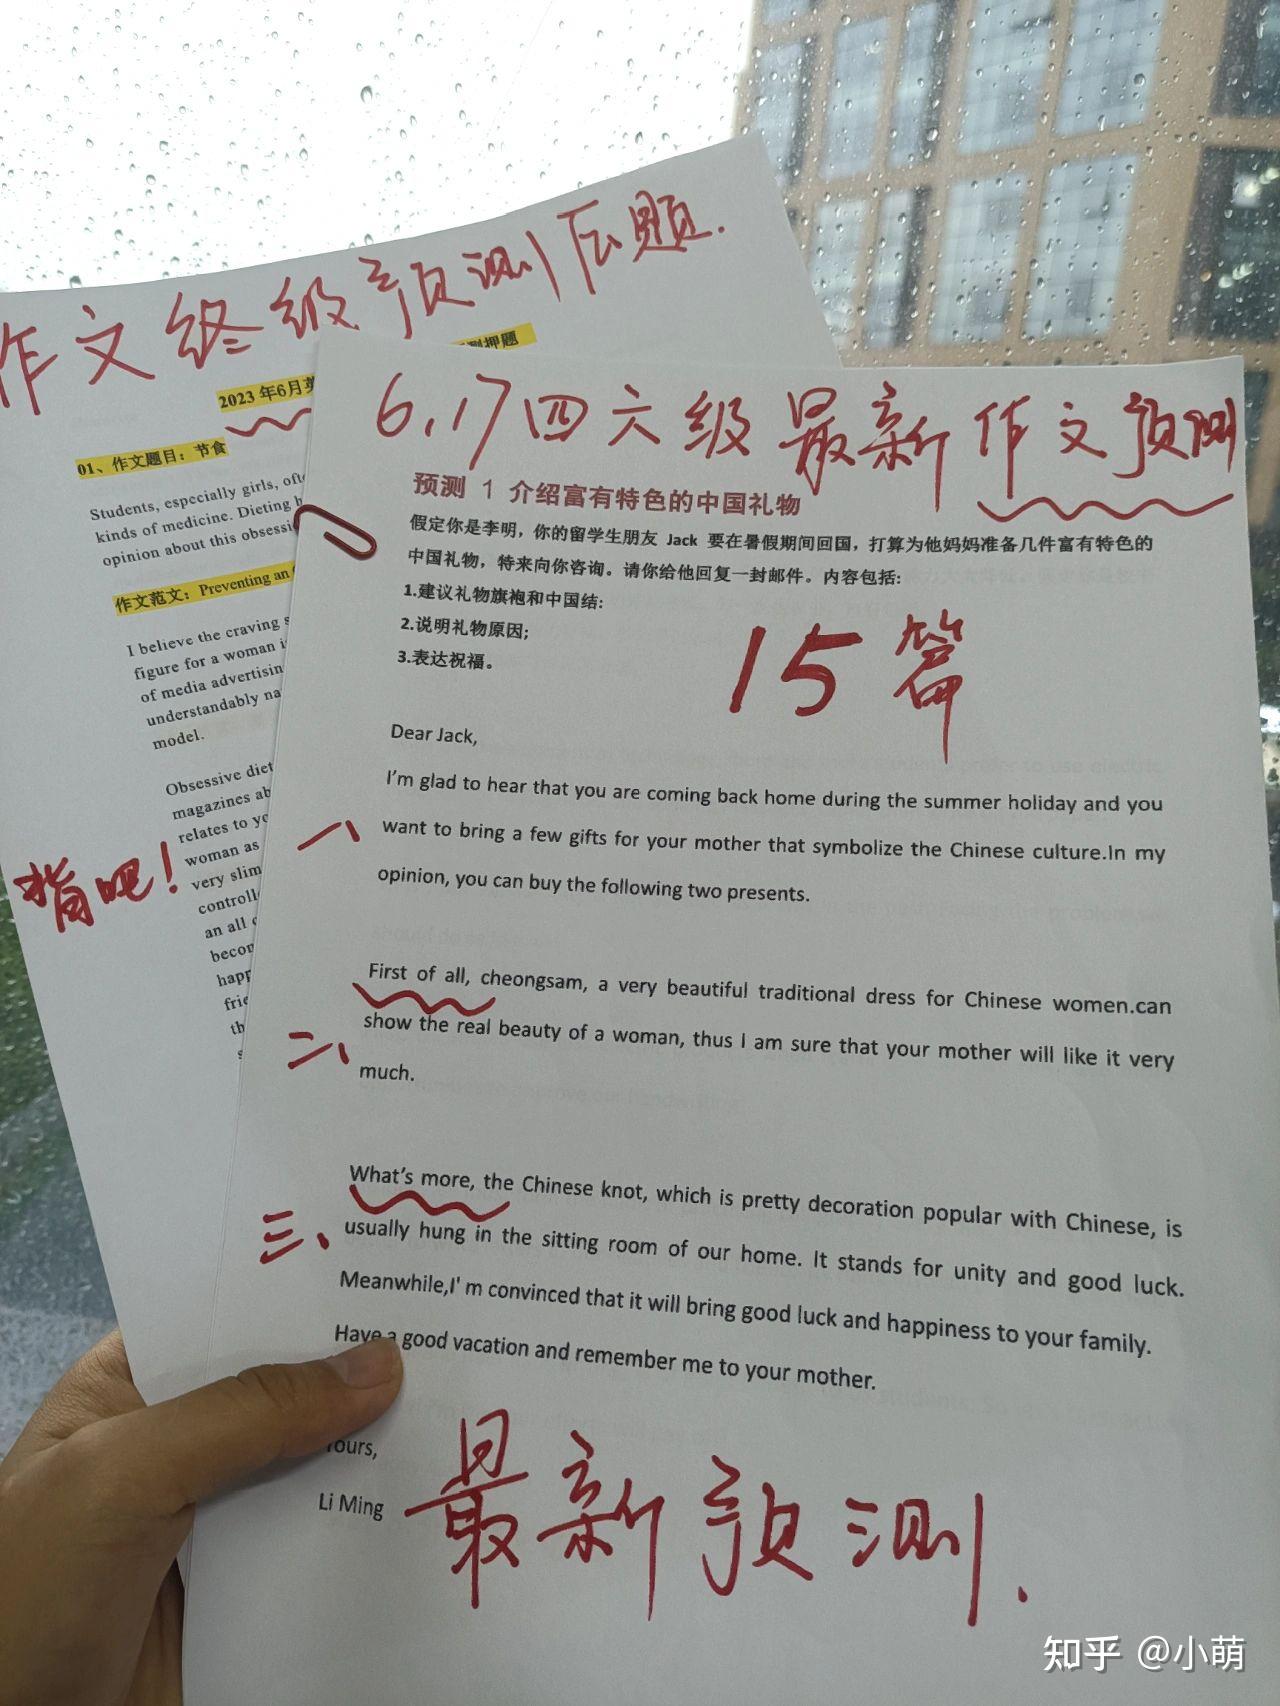 作文终级预测压题.
测押题
2023年6月英
01、作文题目：节食
Students, especially girls, ofte
kinds of medicine. Dieting h
opinion about this obsessi
作文范文：Preventing an
I believe the craving s
figure for a woman i
of media advertisin
understandably na
model.
Obsessive diet
magazines ab
relates to yo
woman as
very slim
controlle
an all
becom
happ
frie
th
s
背吧！
6.17四六级最新作文预测
预测 1 介绍富有特色的中国礼物
假定你是李明，你的留学生朋友 Jack 要在暑假期间回国，打算为他妈妈准备几件富有特色的
中国礼物，特来向你咨询。请你给他回复一封邮件。内容包括:
1.建议礼物旗袍和中国结:
2.说明礼物原因;
3.表达祝福。
15篇
Dear Jack,
I'm glad to hear that you are coming back home during the summer holiday and you
一、want to bring a few gifts for your mother that symbolize the Chinese culture.In my
opinion, you can buy the following two presents.
First of all, cheongsam, a very beautiful traditional dress for Chinese women.can
二、show the real beauty of a woman, thus I am sure that your mother will like it very
much.
What's more, the Chinese knot, which is pretty decoration popular with Chinese, is
三、usually hung in the sitting room of our home. It stands for unity and good luck.
Meanwhile,I' m convinced that it will bring good luck and happiness to your family.
Have a good vacation and remember me to your mother.
Yours,
Li Ming
最新预测.
知乎 @小萌